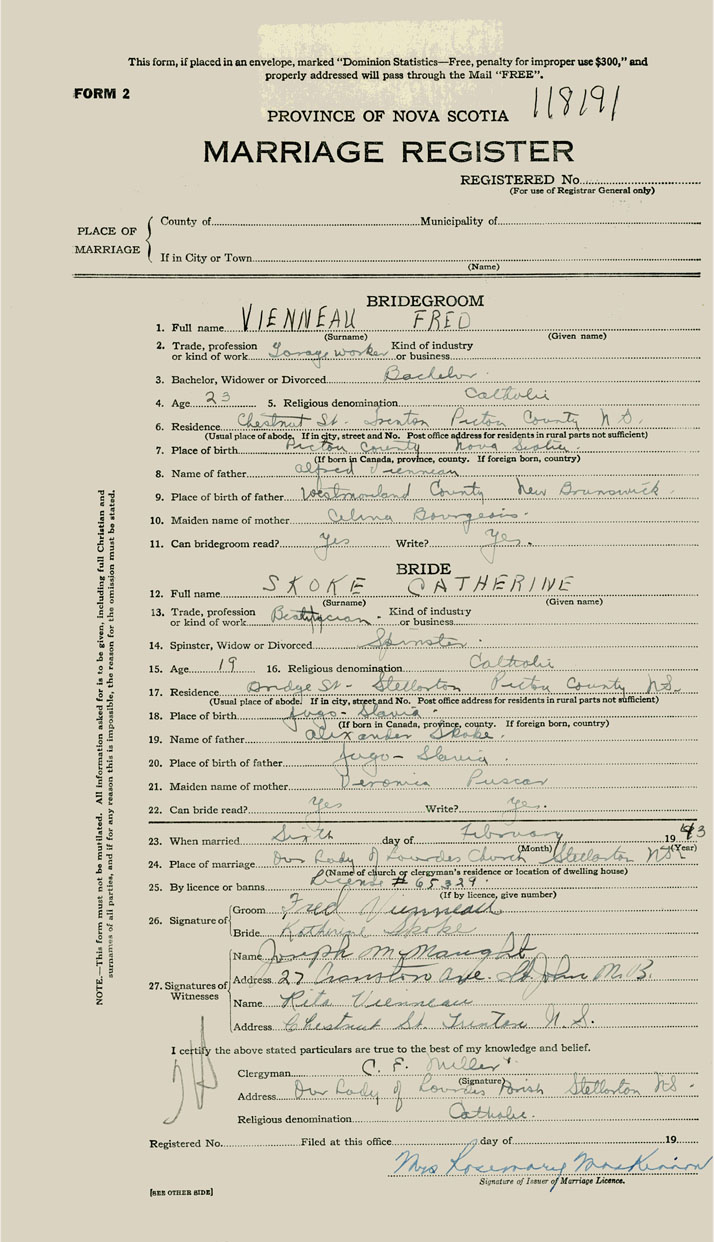 This form, if placed in an envelope, marked "Dominion Statistics—Free, penalty for improper use $300," and
properly addressed will pass through the Mail "FREE".
FORM 2
118191
PROVINCE OF NOVA SCOTIA
MARRIAGE REGISTER
REGISTERED No.
(For use of Registrar General only)
PLACE OF MARRIAGE
County of Municipality of
If in City or Town
(Name)
BRIDEGROOM
1. Full name VIENNEAU FRED
(Surname) (Given name)
2. Trade, profession or kind of work worker Kind of industry or business
3. Bachelor, Widower or Divorced Bachelor
4. Age 23 5. Religious denomination Catholic
6. Residence Chestnut St. Trenton Pictou County N.S.
(Usual place of abode. If in city, street and No. Post office address for residents in rural parts not sufficient)
7. Place of birth Pictou County Nova Scotia
(If born in Canada, province, county. If foreign born, country)
8. Name of father Alfred Vienneau
9. Place of birth of father Westmorland County New Brunswick.
10. Maiden name of mother Celina Bourgeois.
11. Can bridegroom read? Yes Write? Yes.
BRIDE
12. Full name SKOKE CATHERINE
(Surname) (Given name)
13. Trade, profession or kind of work Kind of industry or business
14. Spinster, Widow or Divorced Spinster.
15. Age 19 16. Religious denomination Catholic
17. Residence Bridge St- Stellarton Pictou County N.S.
(Usual place of abode. If in city, street and No. Post office address for residents in rural parts not sufficient)
18. Place of birth Jugo-Slavia.
(If born in Canada, province, county. If foreign born, country)
19. Name of father Alexander Skoke.
20. Place of birth of father Jugo-Slavia.
21. Maiden name of mother Veronica Puscar
22. Can bride read? Yes Write? Yes.
23. When married Sixth day of February 1943
(Month) (Year)
24. Place of marriage Our Lady of Lourdes Church Stellarton N.S.
(Name of church or clergyman's residence or location of dwelling house)
25. By licence or banns License # 65329.
(If by licence, give number)
26. Signature of
Groom Fred Vienneau
Bride Katherine Skoke
27. Signatures of Witnesses
Name Joseph McNaught
Address 27 Cranston Ave. St. John N.B.
Name Rita Vienneau
Address Chestnut St. Trenton N.S.
I certify the above stated particulars are true to the best of my knowledge and belief.
Clergyman C. F. Miller
(Signature)
Address Our Lady of Lourdes Parish Stellarton N.S.
Religious denomination Catholic.
Registered No. Filed at this office day of 19
Mrs Rosemary
Signature of Issuer of Marriage Licence.
[SEE OTHER SIDE]
NOTE.—This form must not be mutilated. All information asked for is to be given, including full Christian and
surnames of all parties, and if for any reason this is impossible, the reason for the omission must be stated.